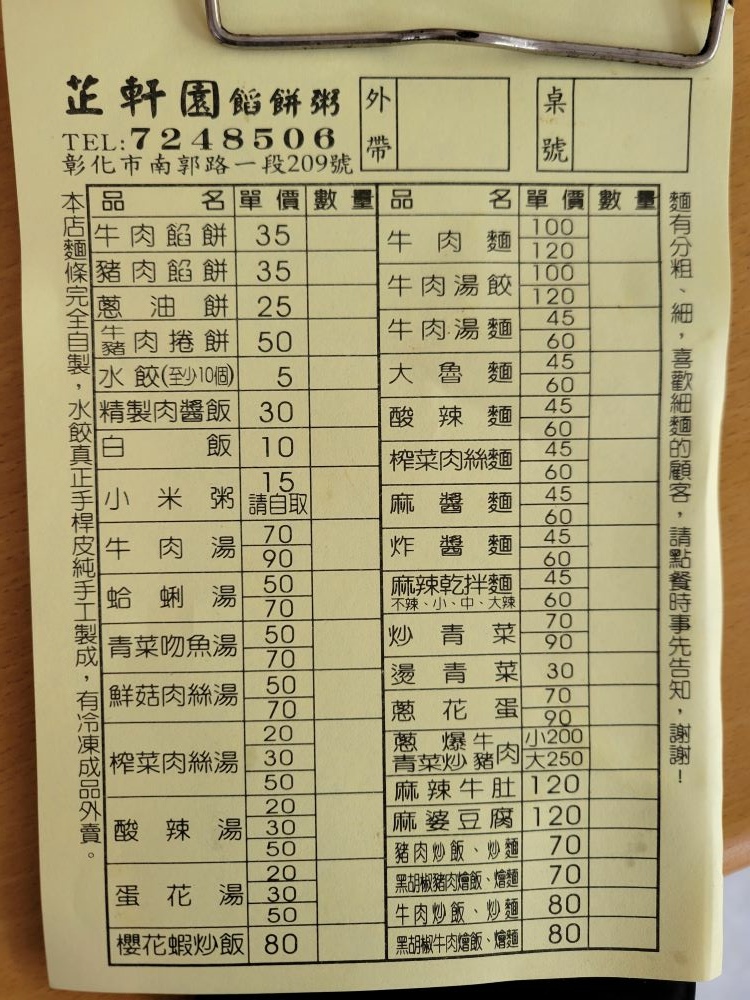 芷軒園餡餅粥
TEL:7248506
彰化市南郭路一段209號
外帶
桌號
本店麵條完全自製,水餃真正手桿皮純手工製成,有冷凍成品外賣。
品名 單價 數量
牛肉餡餅 35
豬肉餡餅 35
蔥油餅 25
牛豬肉捲餅 50
水餃(至少10個) 5
精製肉醬飯 30
白飯 10
小米粥 15 請自取
牛肉湯 70 90
蛤蜊湯 50 70
青菜吻魚湯 50 70
鮮菇肉絲湯 50 70
榨菜肉絲湯 20 30 50
酸辣湯 20 30 50
蛋花湯 20 30 50
櫻花蝦炒飯 80
品名 單價 數量
牛肉麵 100 120
牛肉湯餃 100 120
牛肉湯麵 45 60
大魯麵 45 60
酸辣麵 45 60
榨菜肉絲麵 45 60
麻醬麵 45 60
炸醬麵 45 60
麻辣乾拌麵 45 60
不辣、小、中、大辣
炒青菜 70 90
燙青菜 30
蔥花蛋 70 90
蔥爆牛肉 小200
青菜炒豬肉 大250
麻辣牛肚 120
麻婆豆腐 120
豬肉炒飯、炒麵 70
黑胡椒豬肉燴飯、燴麵 70
牛肉炒飯、炒麵 80
黑胡椒牛肉燴飯、燴麵 80
麵有分粗、細,喜歡細麵的顧客,請點餐時事先告知,謝謝!